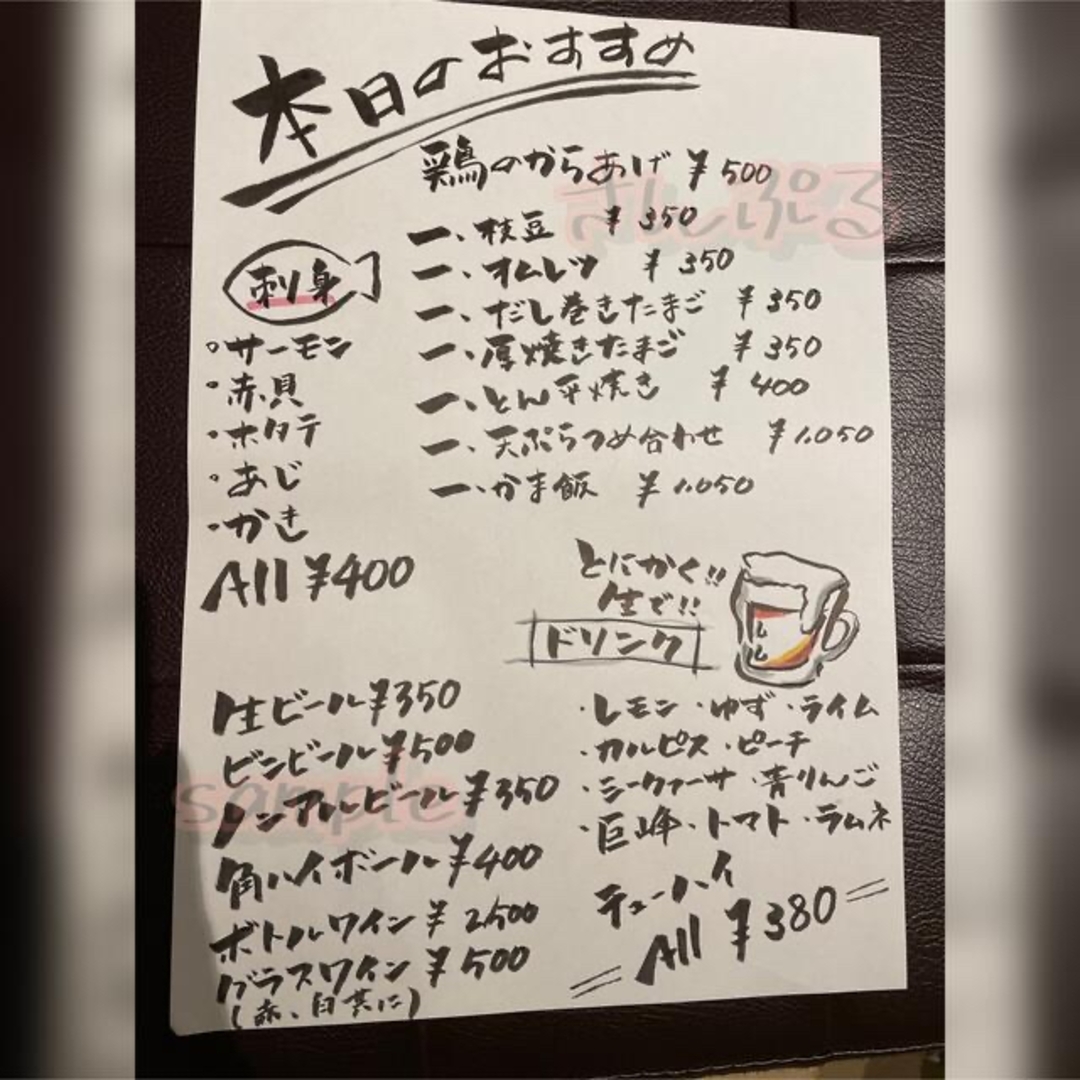 本日のおすすめ
鶏のからあげ ¥500
さんぷる
一、枝豆 ¥350
一、オムレツ ¥350
一、だし巻きたまご ¥350
一、厚焼きたまご ¥350
一、とん平焼き ¥400
一、天ぷらつめ合わせ ¥1,050
一、かま飯 ¥1,050
刺身
・サーモン
・赤貝
・ホタテ
・あじ
・かき
All ¥400
とにかく!!
生で!!
ドリンク
生ビール ¥350
ビンビール ¥500
ノンアルビール ¥350
sample
角ハイボール ¥400
ボトルワイン ¥2,500
グラスワイン ¥500
(赤、白共に)
・レモン ・ゆず ・ライム
・カルピス ・ピーチ
・シークァーサ ・青りんご
・巨峰 ・トマト ・ラムネ
チューハイ
All ¥380